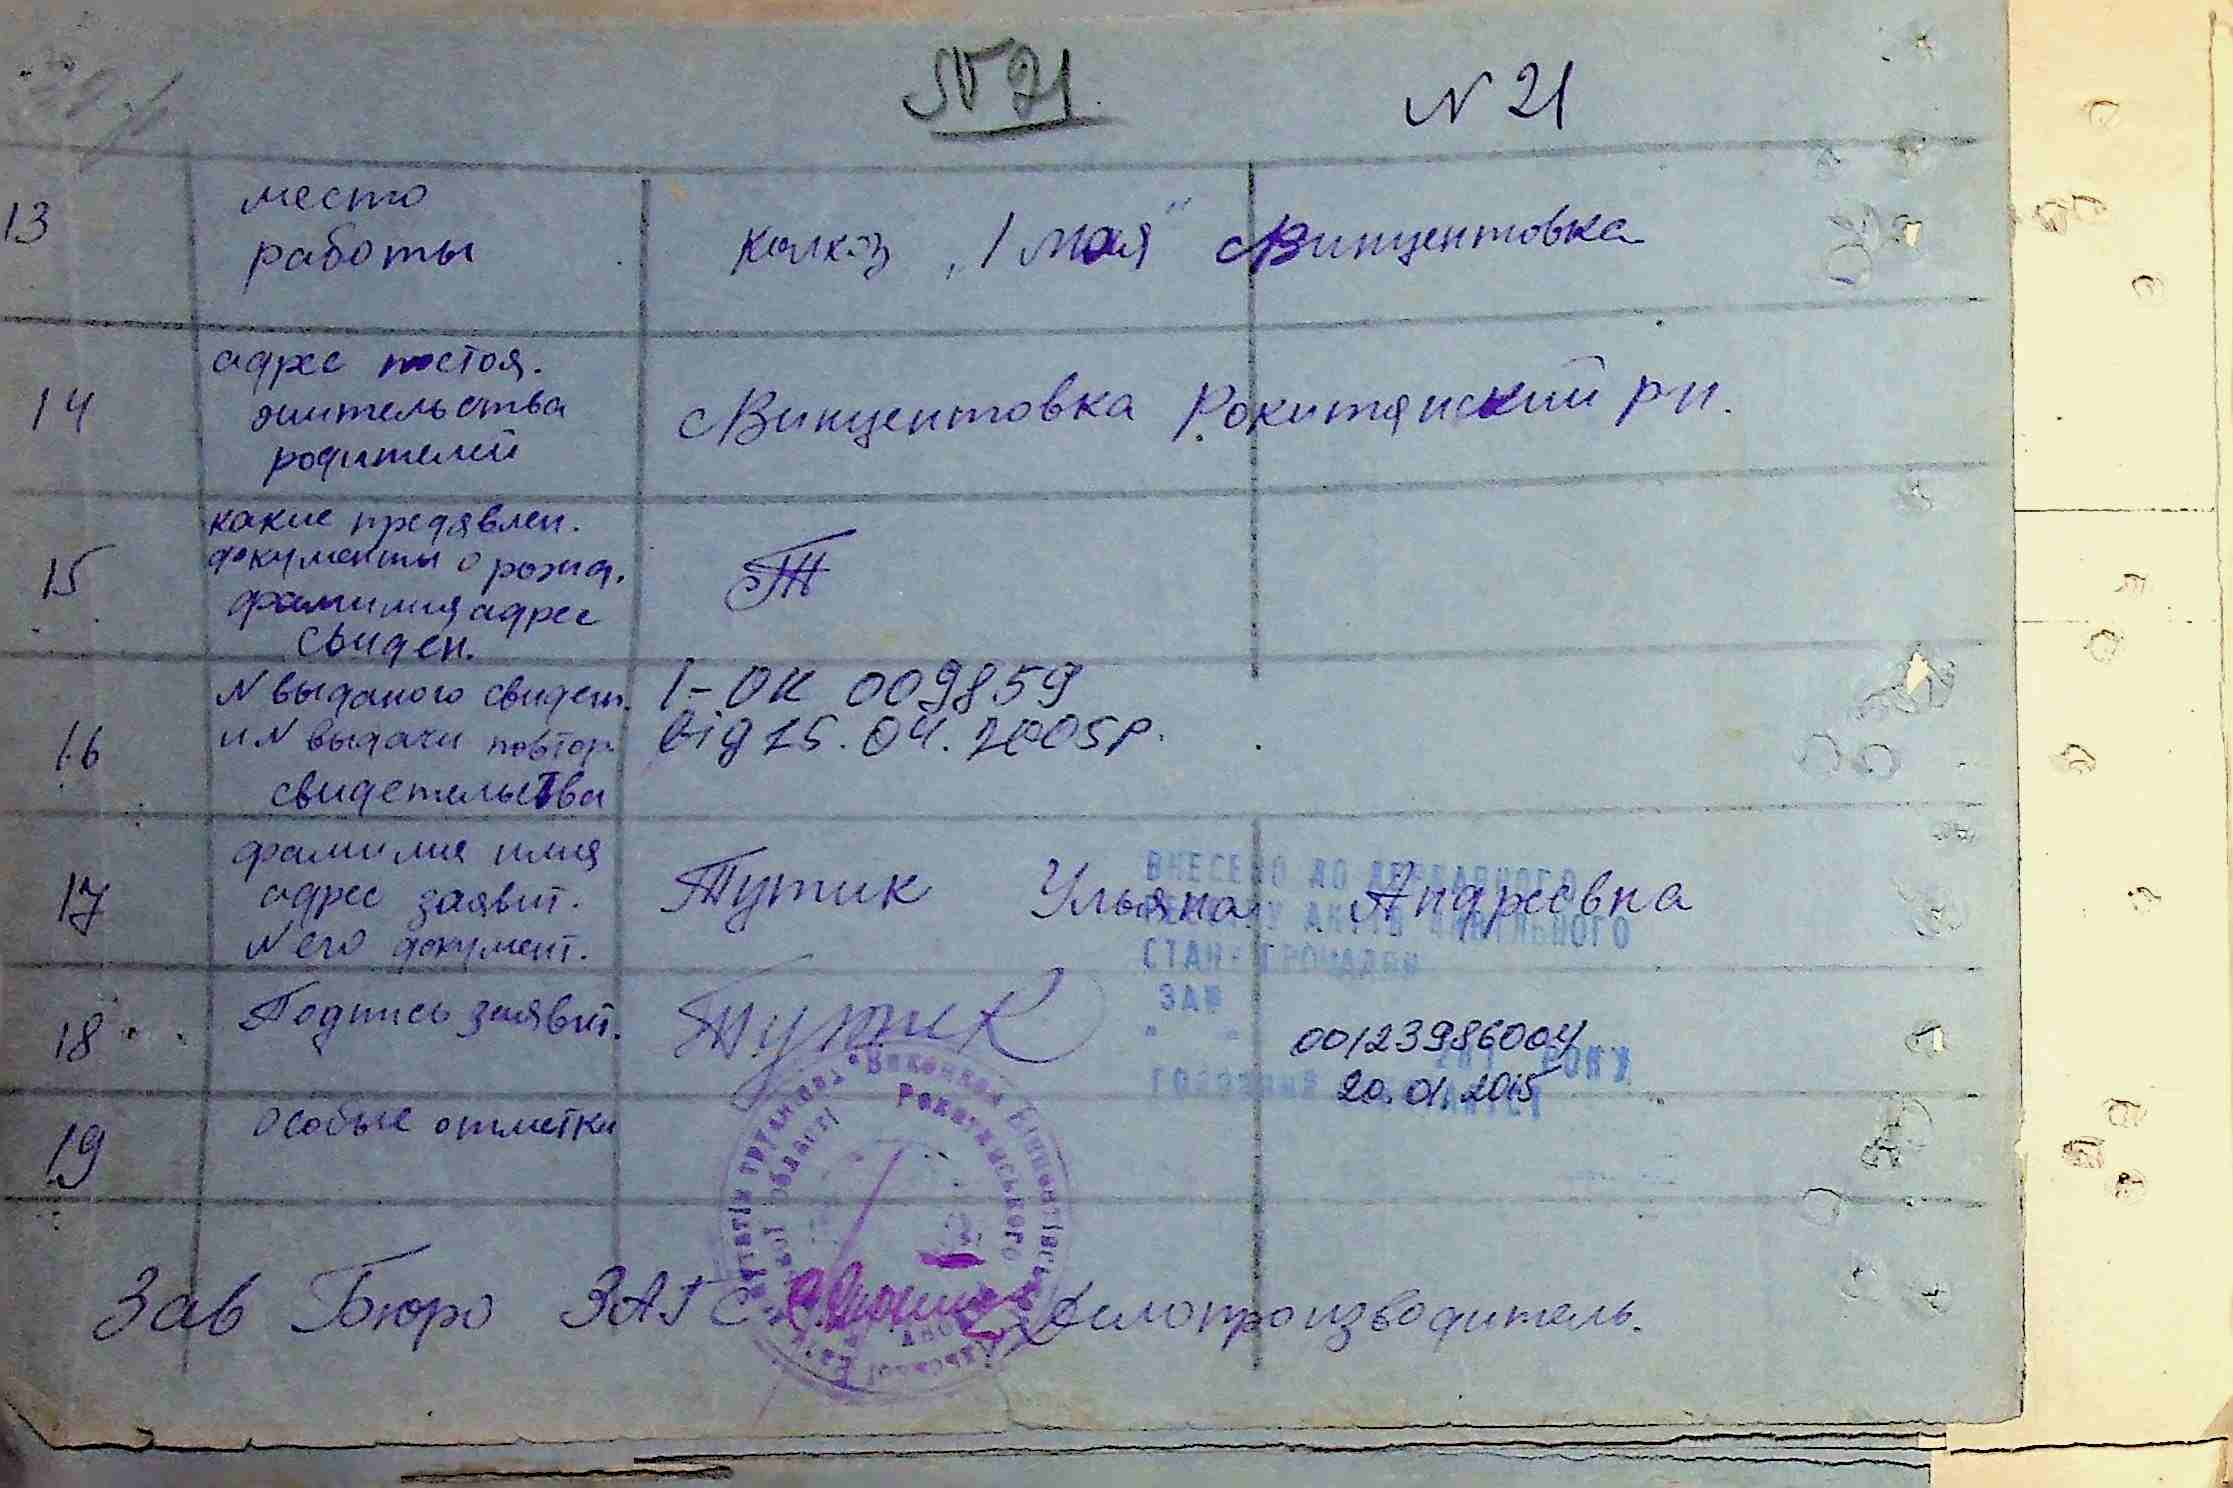 N 21
N 21
13
место
работы
колхоз „1 мая" Винцентовка
14
адрес постоя.
жительства
родителей
Винцентовка Рокитянский рн.
15
какие предявлен.
документы о рожд.
фамилия адрес
свиден.
16
N выданого свидет.
и N выдачи повтор.
свидетельства
І-ОК 009859
від 25.04.2005р.
17
фамилия имя
адрес заявит.
N его документ.
Тутик Ульяна Андреевна
ВНЕСЕНО ДО ДЕРЖАВНОГО
РЕЄСТРУ АКТІВ ЦИВІЛЬНОГО
СТАНУ ГРОМАДЯН
ЗА №
00123986004
201 РОКУ
20.01.2015
18
Подпись заявит.
Тутик
19
Особые отметки
Виконком
Рокитянського
області
Зав Бюро ЗАГС
Делопроизводитель.